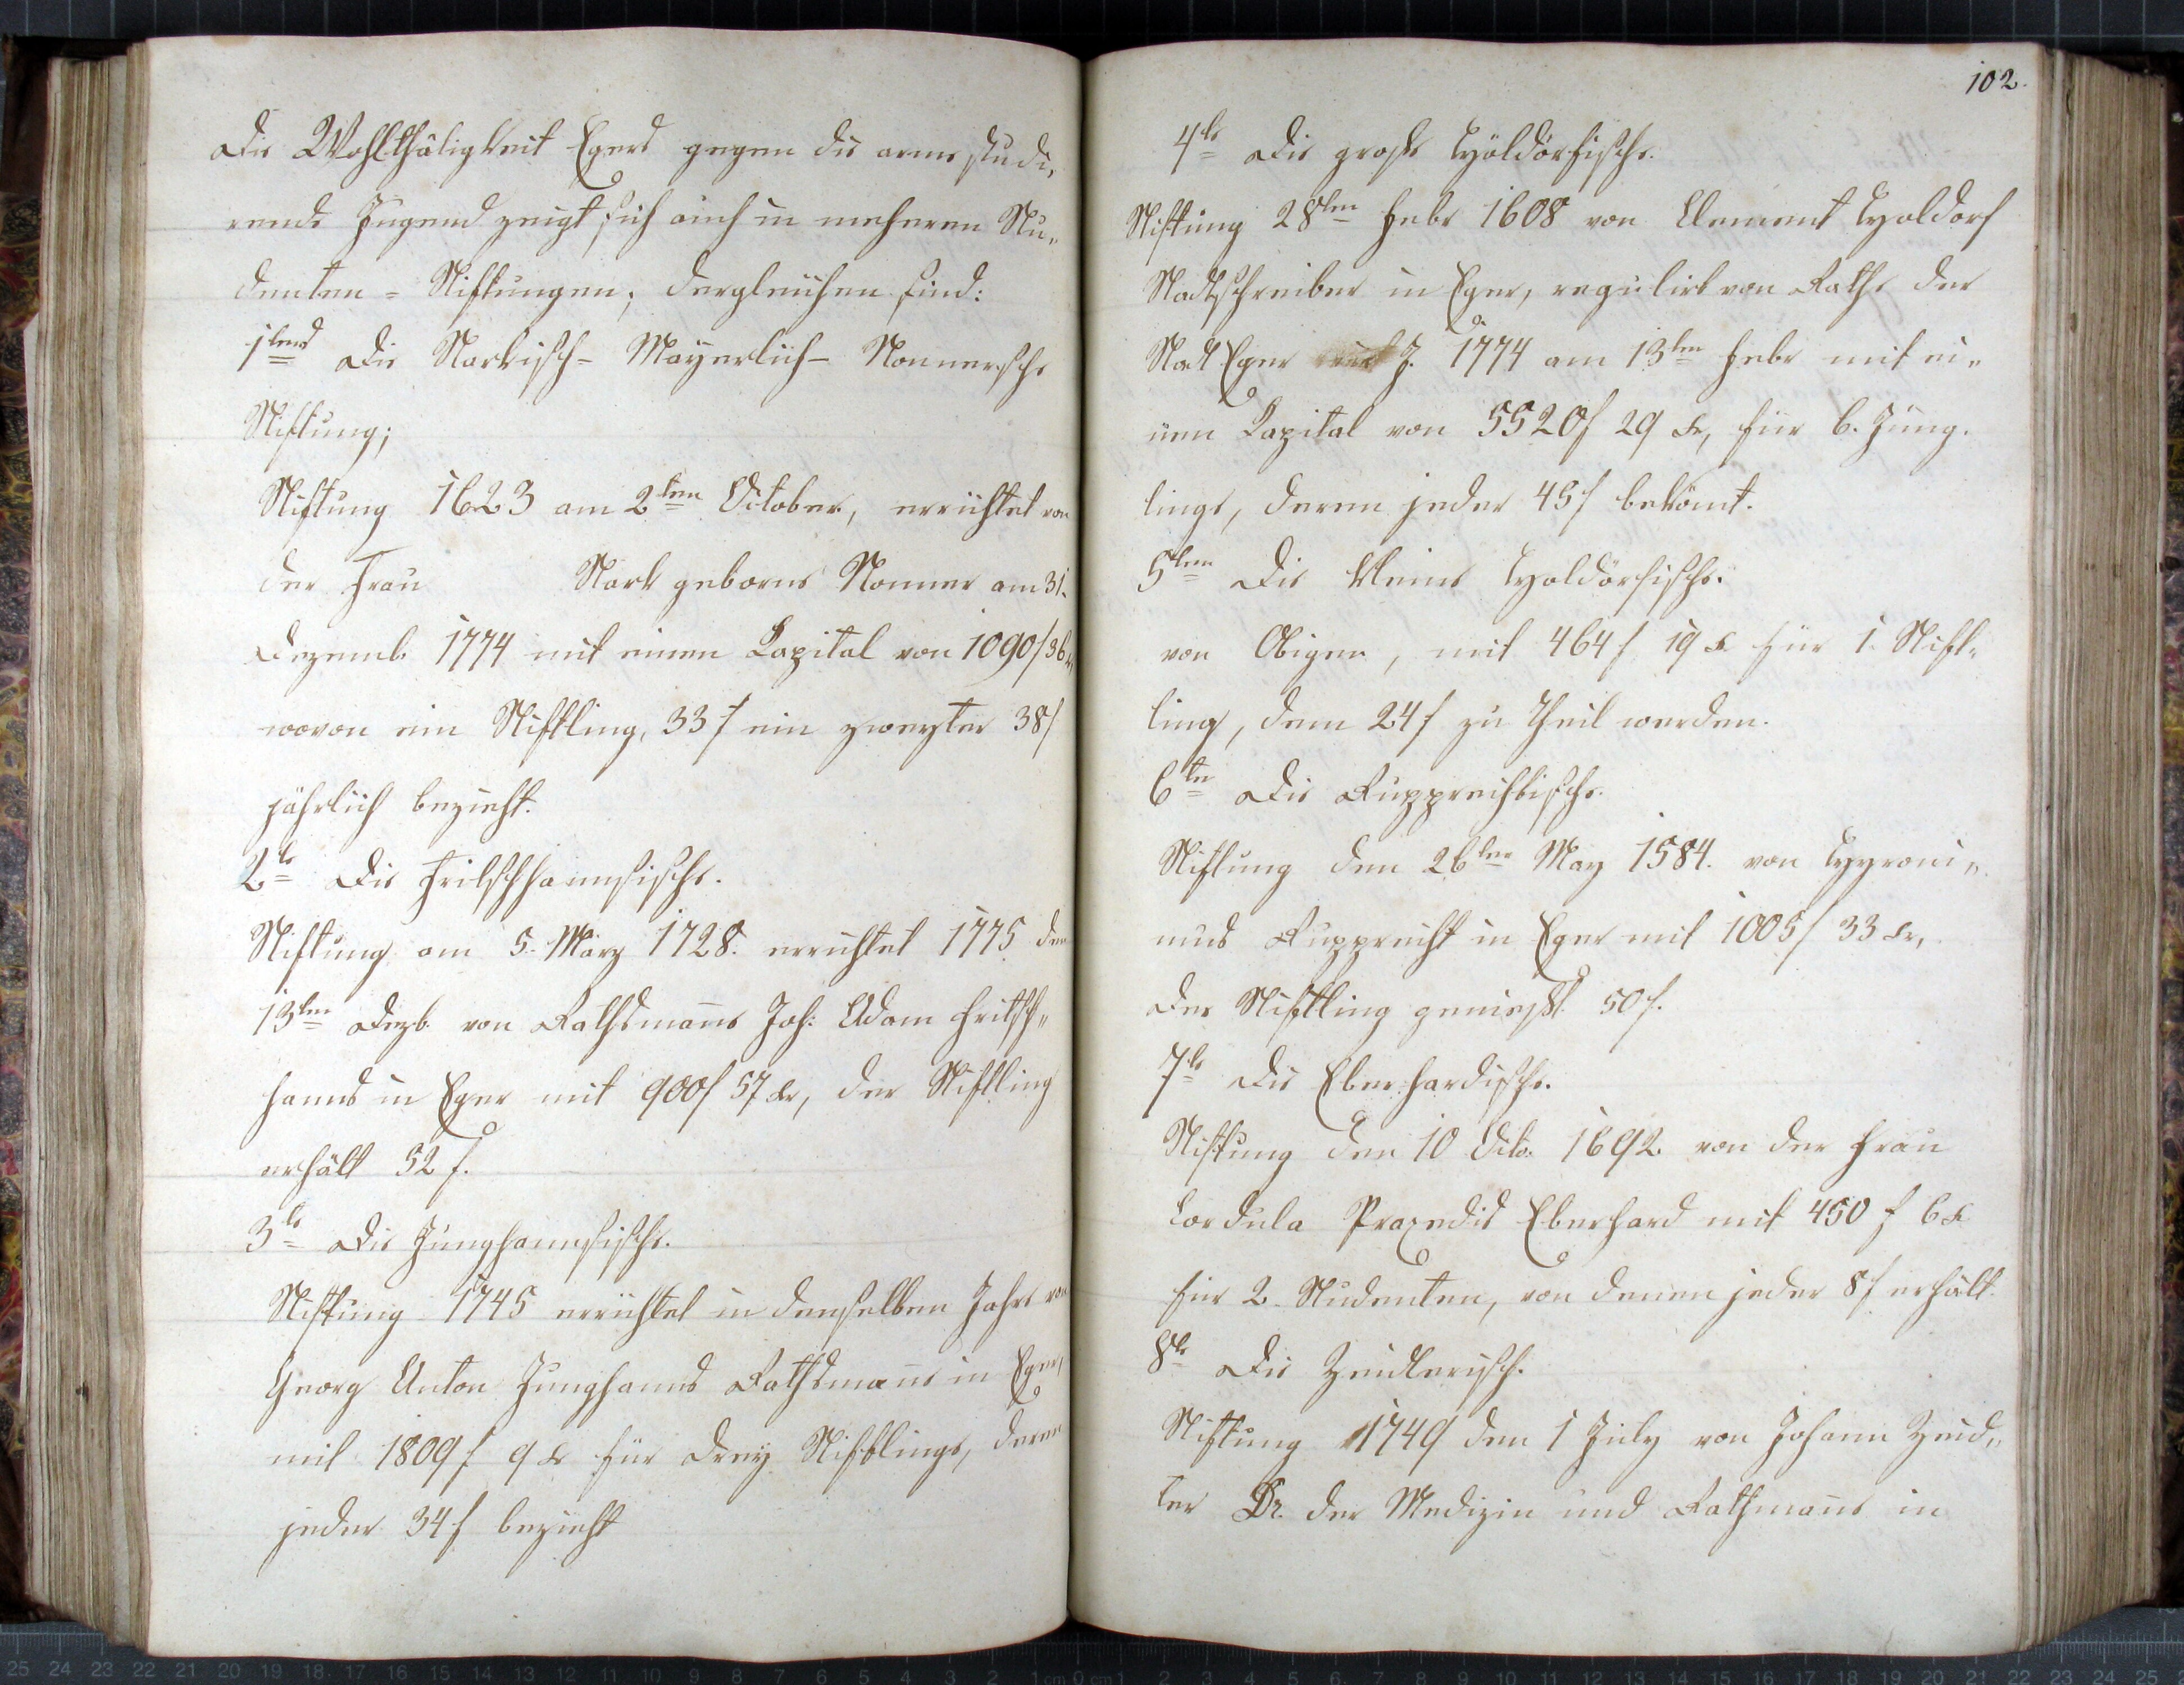 Die Wohlthätigkeit Egers gegen die arme studi„
rende Jugend zeigt sich auch in mehreren Stu„
denten = Stiftungen; dergleichen sind:
1tens Die Starkisch- Mayerlich- Nonnersche
Stiftung;
Stiftung 1623 am 2ten October, errichtet von
der Frau Stark geborne Nonner am 31.
Dezemb. 1774 mit einem Capital von 1090 f 36 kr,
wovon ein Stiftling, 33 f ein zweyter 38 f
jährlich bezieht.
2te Die Fritschhannsische.
Stiftung am 5. März 1728. errichtet 1775 den
13ten Dezb. von Rathsmanne Joh: Adam Fritsch„
hanns in Eger mit 900 f 57 kr, der Stiftling
erhält 52 f.
3te Die Junghannsische.
Stiftung 1745 errichtet in demselben Jahre von
Georg Anton Junghanns Rathsmann in Eger,
mit 1809 f 9 kr für drey Stiftlinge, deren
jeder 34 f bezieht
102.
4te Die große Hyöldörfische.
Stiftung 28ten Febr 1608 von Clement Hyoldorf
Stadtschreiber in Eger, regulirt von Rathe der
Stadt Eger J. 1774 am 13ten Febr mit ei„
nem Capital von 5520 f 29 kr, für 6. Jüng.
linge, deren jeder 45 f bekömt.
5ten Die kleine Hyoldörfische.
von Obigen, mit 464 f 19 kr für 1. Stift„
ling, dem 24 f zu Theil werden.
6te Die Rupprechtische.
Stiftung den 26ten May 1584. von Hyroni„
mus Rupprecht in Eger mit 1005 f 33 kr,
der Stiftling genießt 50 f.
7te Die Eberhardische.
Stiftung den 10 Octo: 1692. von der Frau
Cordula Praxedis Eberhard mit 450 f 6 kr
für 2. Studenten, von denen jeder 8 f erhält.
8te Die Zeidlerisch.
Stiftung 1749 den 1 July von Johann Zeid„
ler Dr. der Medizin und Rathmann in